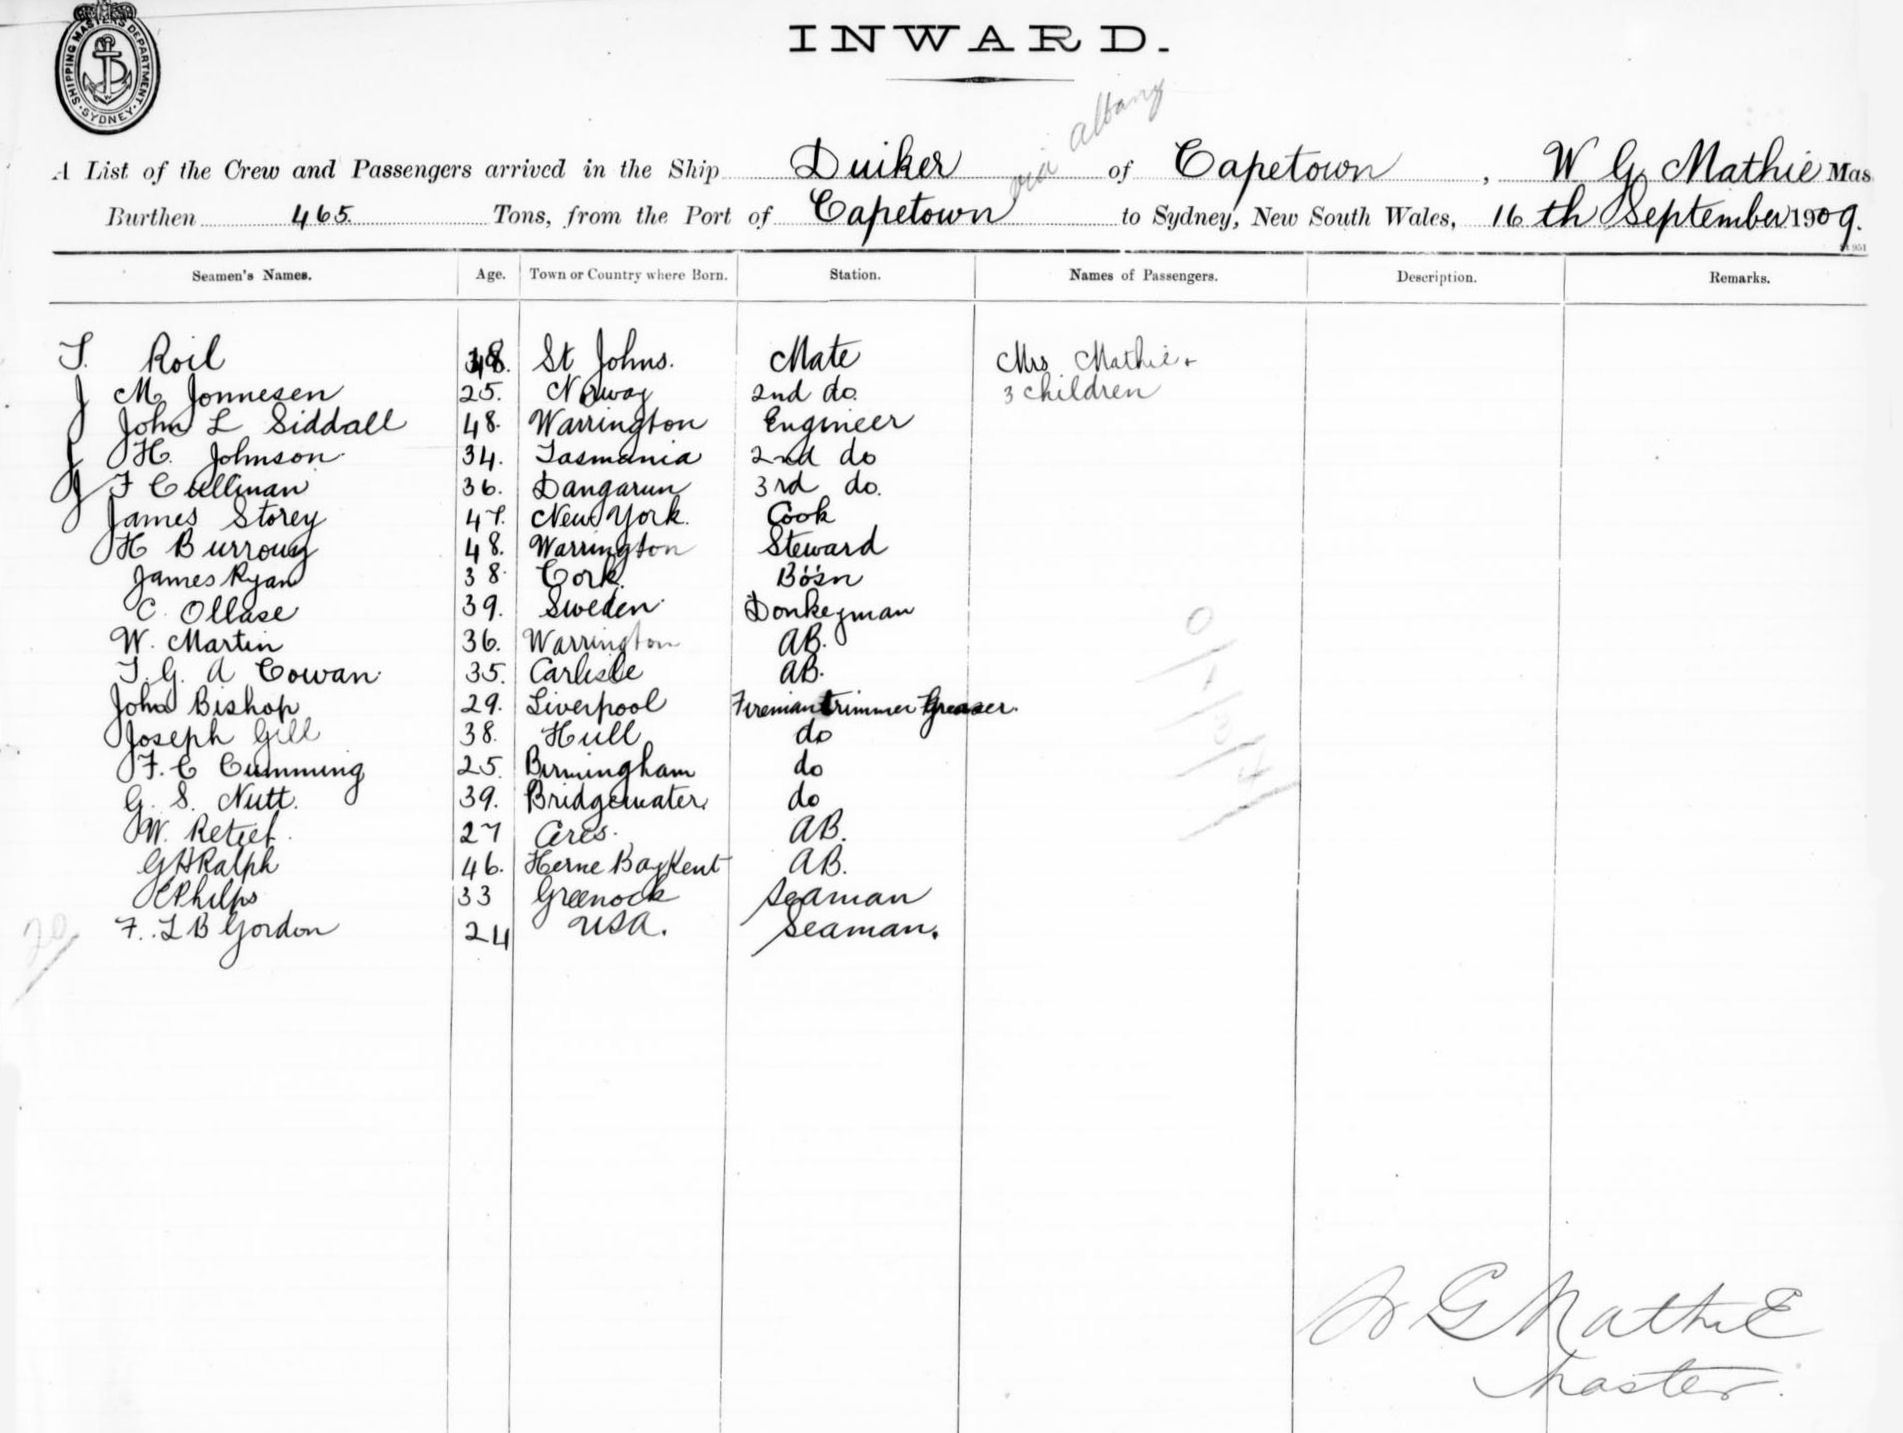 SHIPPING MASTERS DEPARTMENT. SYDNEY.
INWARD.
via Albany
A List of the Crew and Passengers arrived in the Ship Duiker of Capetown, W G Mathie Mas
Burthen 465 Tons, from the Port of Capetown to Sydney, New South Wales, 16th September 1909.
Seamen's Names. Age. Town or Country where Born. Station. Names of Passengers. Description. Remarks.
T. Roil 48. St Johns. Mate Mrs Mathie +
J M Jonnesen 25. Norway 2nd do. 3 children
John L Siddall 48. Warrington Engineer
J H. Johnson 34. Tasmania 2nd do
J F Cullinan 36. Dangarun 3rd do.
James Storey 47. New York. Cook
H Burrows 48. Warrington Steward
James Ryan 38. Cork. Bosn
C. Ollase 39. Sweden Donkeyman
W. Martin 36. Warrington AB.
T. G. A Cowan 35. Carlisle AB.
John Bishop 29. Liverpool Fireman trimmer Greaser.
Joseph Gill 38. Hull do
F. C Cumming 25. Birmingham do
G. S. Nutt. 39. Bridgewater. do
W. Retief. 27 Ceres. AB.
G H Ralph 46. Herne Bay Kent AB.
C Philps 33 Greenock Seaman
F. L B Gordon 24 USA. Seaman.
20
0/1/3/4
W G Mathie
Master.